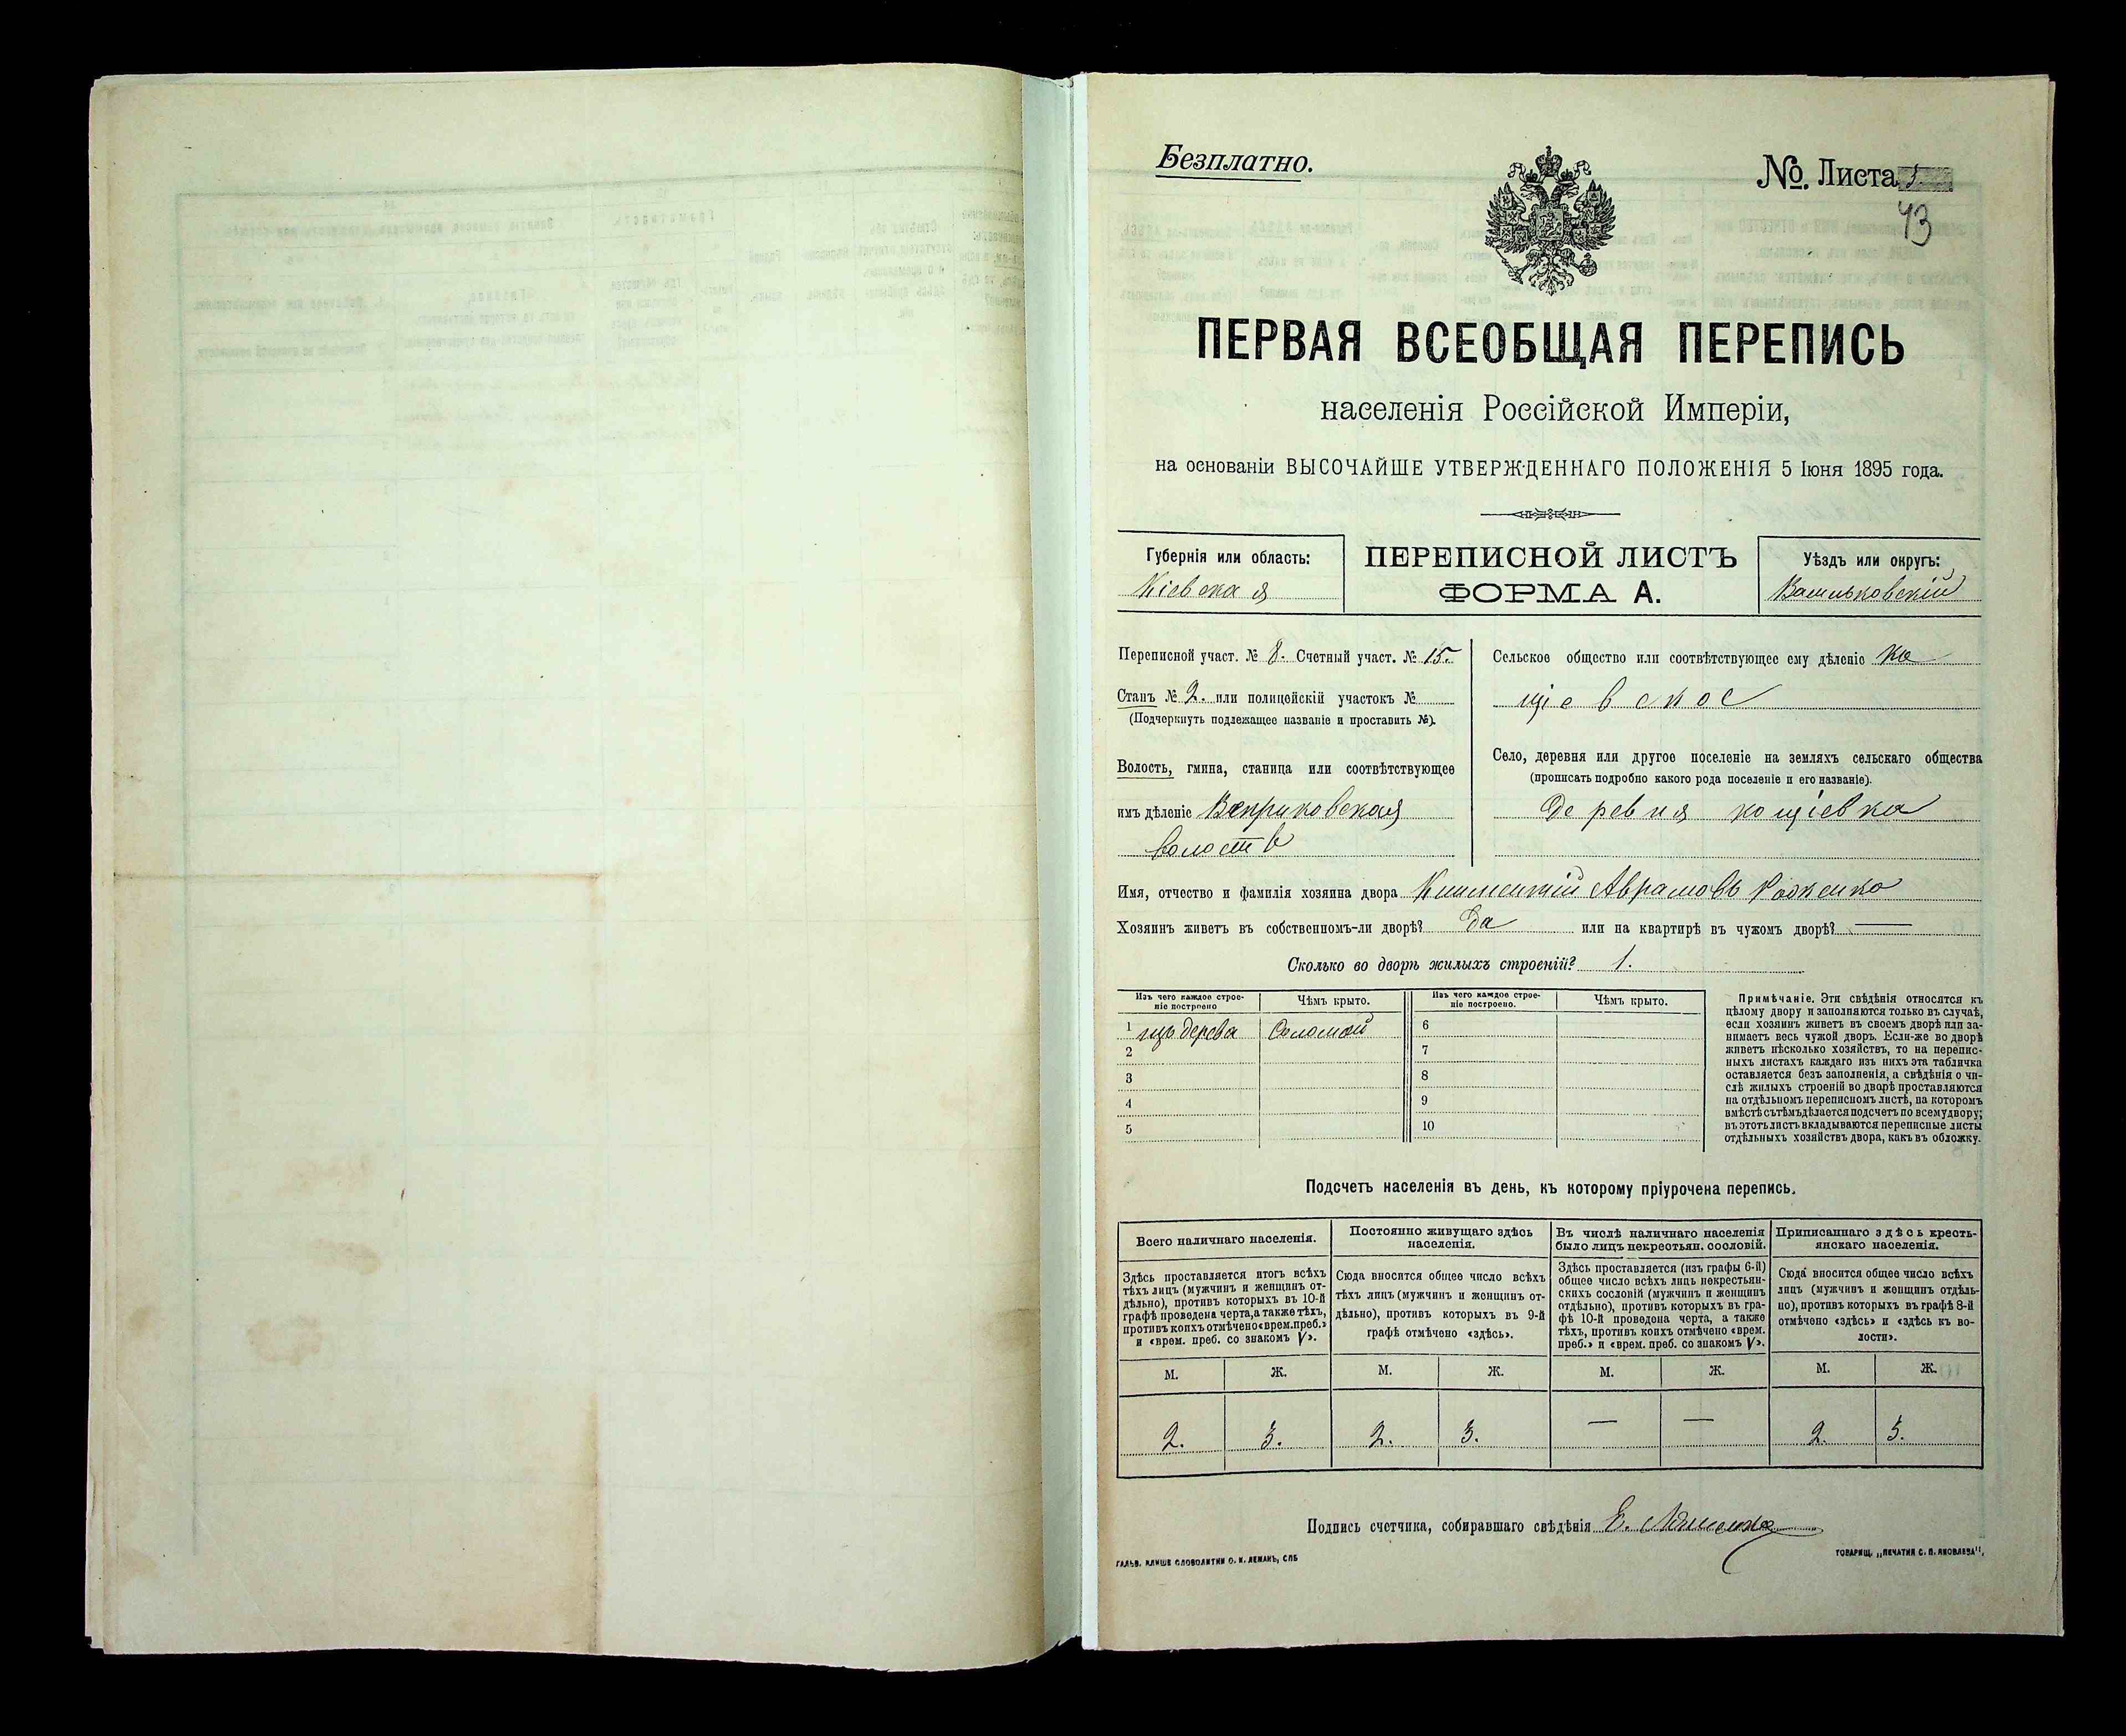 Безплатно.
№. Листа
43
ПЕРВАЯ ВСЕОБЩАЯ ПЕРЕПИСЬ
населенія Россійской Имперіи,
на основаніи ВЫСОЧАЙШЕ УТВЕРЖДЕННАГО ПОЛОЖЕНІЯ 5 Іюня 1895 года.
Губернія или область:
Кіевская
ПЕРЕПИСНОЙ ЛИСТЪ
ФОРМА А.
Уѣздъ или округъ:
Васильковскій
Переписной участ. № 8. Счетный участ. № 15.
Станъ № 2. или полицейскій участокъ №
(Подчеркнуть подлежащее названіе и проставить №).
Волость, гмина, станица или соотвѣтствующее
имъ дѣленіе Веприковская
волость
Сельское общество или соотвѣтствующее ему дѣленіе Ко
щіевское
Село, деревня или другое поселеніе на земляхъ сельскаго общества
(прописать подробно какого рода поселеніе и его названіе).
Деревня кощіевка
Имя, отчество и фамилія хозяина двора Климентій Аврамовъ
Хозяинъ живетъ въ собственномъ-ли дворѣ? Да или на квартирѣ въ чужомъ дворѣ? —
Сколько во дворѣ жилыхъ строеній? 1.
Изъ чего каждое строе-
ніе построено
Чѣмъ крыто.
1 изъ дерева Соломой
2
3
4
5
Изъ чего каждое строе-
ніе построено.
Чѣмъ крыто.
6
7
8
9
10
Примѣчаніе. Эти свѣдѣнія относятся къ
цѣлому двору и заполняются только въ случаѣ,
если хозяинъ живетъ въ своемъ дворѣ или за-
нимаетъ весь чужой дворъ. Если-же во дворѣ
живетъ нѣсколько хозяйствъ, то на перепис-
ныхъ листахъ каждаго изъ нихъ эта табличка
оставляется безъ заполненія, а свѣдѣнія о чи-
слѣ жилыхъ строеній во дворѣ проставляются
на отдѣльномъ переписномъ листѣ, на которомъ
вмѣстѣ съ тѣмъ дѣлается подсчетъ по всему двору;
въ этотъ листъ вкладываются переписные листы
отдѣльныхъ хозяйствъ двора, какъ въ обложку.
Подсчетъ населенія въ день, къ которому пріурочена перепись.
Всего наличнаго населенія.
Здѣсь проставляется итогъ всѣхъ
тѣхъ лицъ (мужчинъ и женщинъ от-
дѣльно), противъ которыхъ въ 10-й
графѣ проведена черта, а также тѣхъ,
противъ коихъ отмѣчено «врем. преб.»
и «врем. преб. со знакомъ V».
М. Ж.
2. 3.
Постоянно живущаго здѣсь
населенія.
Сюда вносится общее число всѣхъ
тѣхъ лицъ (мужчинъ и женщинъ от-
дѣльно), противъ которыхъ въ 9-й
графѣ отмѣчено «здѣсь».
М. Ж.
2. 3.
Въ числѣ наличнаго населенія
было лицъ некрестьян. сословій.
Здѣсь проставляется (изъ графы 6-й)
общее число всѣхъ лицъ некрестьян-
скихъ сословій (мужчинъ и женщинъ
отдѣльно), противъ которыхъ въ гра-
фѣ 10-й проведена черта, а также
тѣхъ, противъ коихъ отмѣчено «врем.
преб.» и «врем. преб. со знакомъ V».
М. Ж.
— —
Приписаннаго здѣсь кресть-
янскаго населенія.
Сюда вносится общее число всѣхъ
лицъ (мужчинъ и женщинъ отдѣль-
но), противъ которыхъ въ графѣ 8-й
отмѣчено «здѣсь» и «здѣсь къ во-
лости».
М. Ж.
2. 3.
Подпись счетчика, собиравшаго свѣдѣнія
ГАЛЬВ. КЛИШЕ СЛОВОЛИТНИ О. И. ЛЕМАНЪ, СПБ
ТОВАРИЩ. „ПЕЧАТНЯ С. П. ЯКОВЛЕВА".